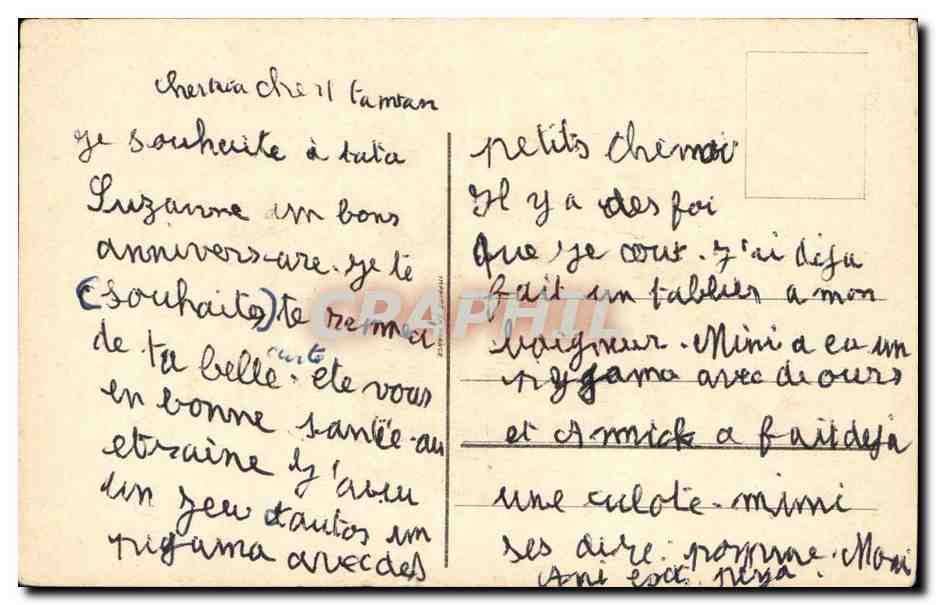 je souhaite à tata
Suzanne un bons
anniversare. je te
(souhaites) te remerci
de ta belle carte. ete vous
en bonne santée. au
etraine j'ai eu
un jeu d'autos un
pigama avec des
petits chinoi
Il y a des foi
que je cout. j'ai deja
fait un tablier a mon
baigneur. Mimi a eu un
pygama avec de ours
et Annick a fait deja
une culote. mimi
ses dire. pomme. Moni
CPRAPHIL